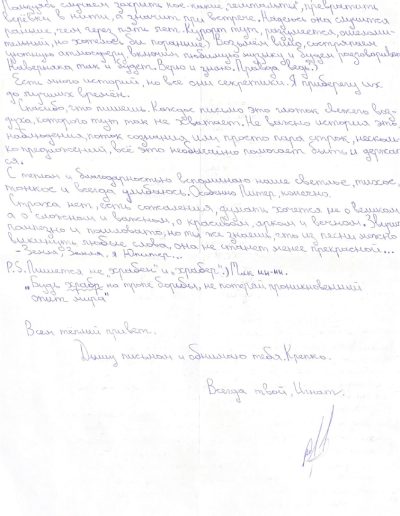 Пользуясь случаем закрыть кое-какие „гештальты", превратить
верёвки в нити, а значит при встрече. Надеюсь она случится
раньше, чем через пять лет. Курорт тут, разумеется,
но хотелось бы пораньше). Возьмём вино, состряпаем
атмосферу включим любимую музыку и будем разговаривать
Наверняка так и будет. Верю и знаю. Правда ведь?
Есть много историй, но все они секретики. Я приберегу их
до лучших времён.
Спасибо, что пишешь. Каждое письмо это глоток свежего воз-
духа, которого тут так не хватает. Не важно история это,
наблюдения, поток сознания или просто пара строк, несколь-
ко предложений, всё это необычайно помогает быть и держать-
ся.
С теплом и благодарностью вспоминаю наше светлое, тихое,
тонкое и всегда улыбаюсь. Особенно Питер, конечно.
Страха нет, есть сожаления, думать хочется не о великом
а о сложном и важном, о красивом, ярком и вечном. Звучит
пампезно и но ты же знаешь, что из песни можно
выкинуть любые слова, она не станет менее прекрасной...
— Земля, Земля, я Юпитер...
P.S. Пишется не „храбен" и „храбер". Так ни-ни.
„Будь храбр на тропе борьбы, не потеряй проникновенней
этот мира"
Всем тёплый привет.
Дышу письмами и обнимаю тебя. Крепко.
Всегда твой, Игнат.